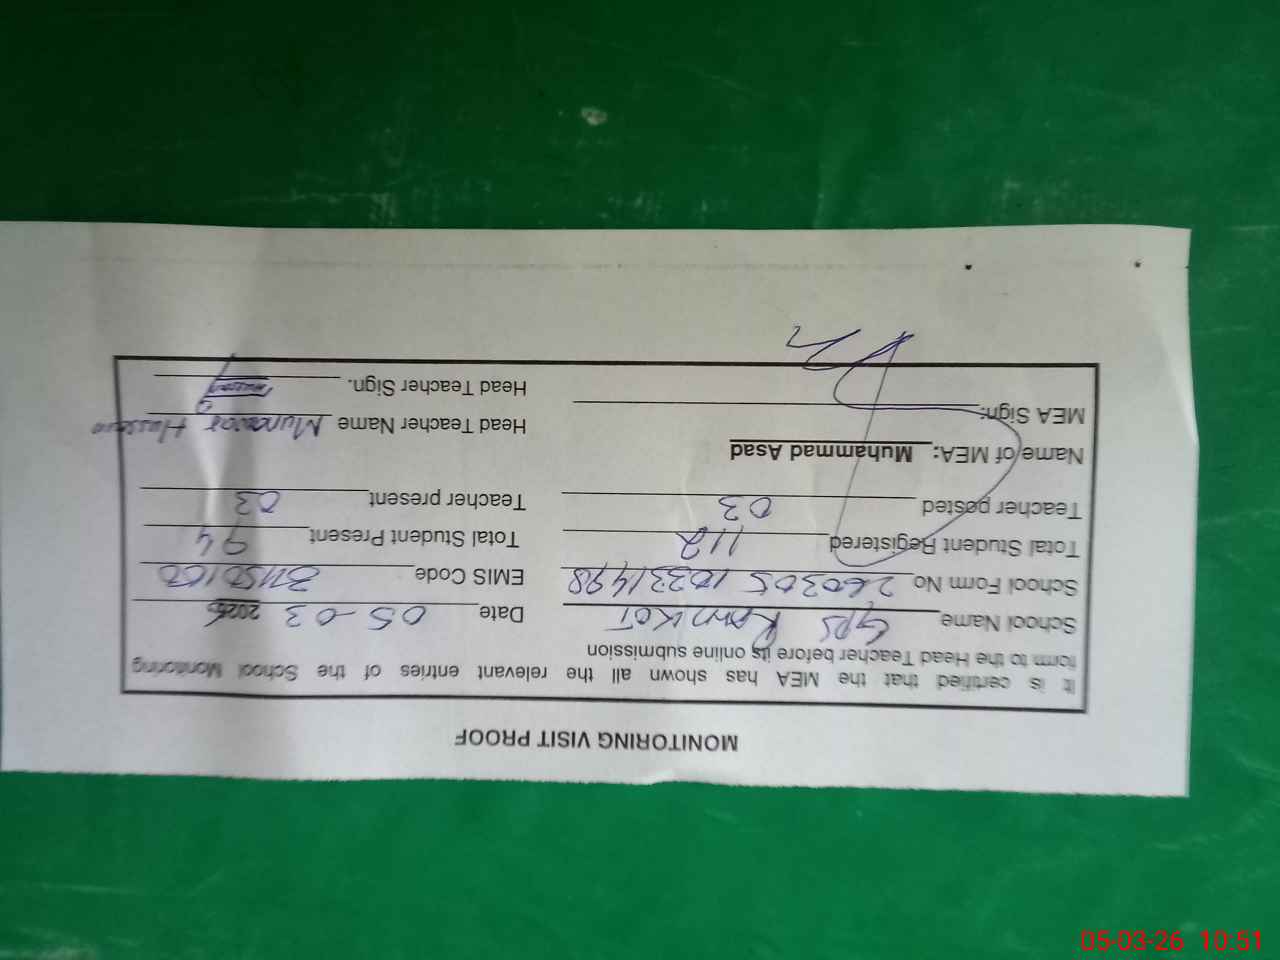 MONITORING VISIT PROOF
It is certified that the MEA has shown all the relevant entries of the School Monitoring
form to the Head Teacher before its online submission
School Name GPS Ramkot Date 05-03 2026
School Form No 260305 10331498 EMIS Code
Total Student Registered 112 Total Student Present 94
Teacher posted 03 Teacher present 03
Name of MEA: Muhammad Asad Head Teacher Name Munawar Hussain
MEA Sign: Head Teacher Sign.
05-03-26 10:51